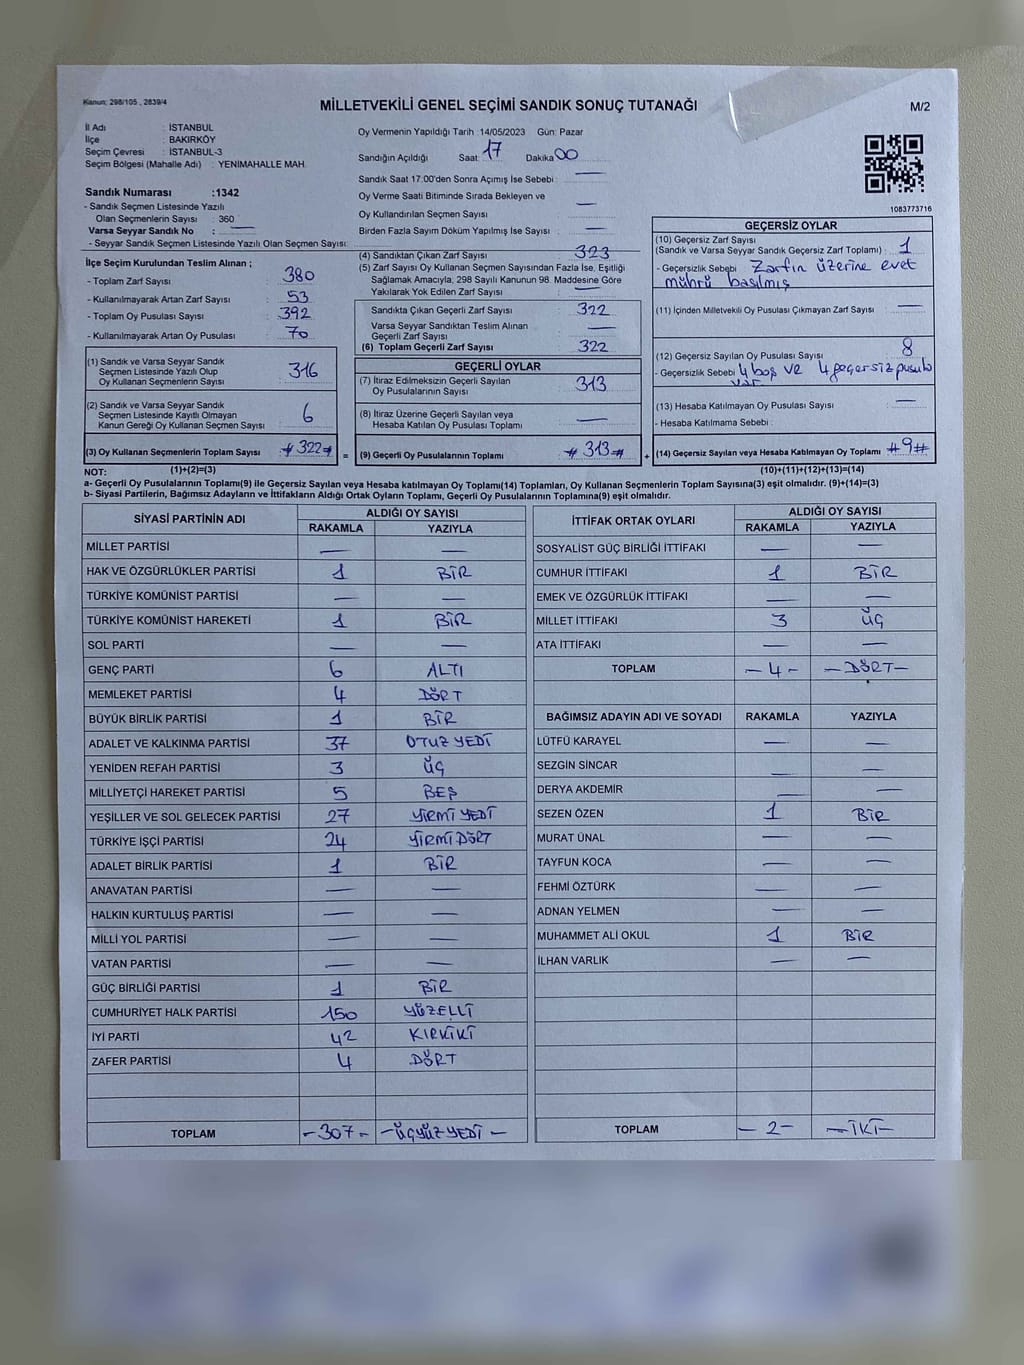 Kanun: 298/105 , 2839/4
MİLLETVEKİLİ GENEL SEÇİMİ SANDIK SONUÇ TUTANAĞI
M/2
İl Adı : İSTANBUL
İlçe : BAKIRKÖY
Seçim Çevresi : İSTANBUL-3
Seçim Bölgesi (Mahalle Adı) : YENİMAHALLE MAH.
Sandık Numarası :1342
- Sandık Seçmen Listesinde Yazılı
Olan Seçmenlerin Sayısı : 360
Varsa Seyyar Sandık No : —
- Seyyar Sandık Seçmen Listesinde Yazılı Olan Seçmen Sayısı:
Oy Vermenin Yapıldığı Tarih :14/05/2023 Gün: Pazar
Sandığın Açıldığı Saat: 17 Dakika 00
Sandık Saat 17:00'den Sonra Açımış İse Sebebi : —
Oy Verme Saati Bitiminde Sırada Bekleyen ve
Oy Kullandırılan Seçmen Sayısı : —
Birden Fazla Sayım Döküm Yapılmış İse Sayısı : —
1083773716
İlçe Seçim Kurulundan Teslim Alınan ;
- Toplam Zarf Sayısı : 380
- Kullanılmayarak Artan Zarf Sayısı : 53
- Toplam Oy Pusulası Sayısı : 392
- Kullanılmayarak Artan Oy Pusulası : 70
(1) Sandık ve Varsa Seyyar Sandık
Seçmen Listesinde Yazılı Olup
Oy Kullanan Seçmenlerin Sayısı : 316
(2) Sandık ve Varsa Seyyar Sandık
Seçmen Listesinde Kayıtlı Olmayan
Kanun Gereği Oy Kullanan Seçmen Sayısı : 6
(3) Oy Kullanan Seçmenlerin Toplam Sayısı : #322#
(4) Sandıktan Çıkan Zarf Sayısı : 323
(5) Zarf Sayısı Oy Kullanan Seçmen Sayısından Fazla İse, Eşitliği
Sağlamak Amacıyla, 298 Sayılı Kanunun 98. Maddesine Göre
Yakılarak Yok Edilen Zarf Sayısı : —
Sandıkta Çıkan Geçerli Zarf Sayısı : 322
Varsa Seyyar Sandıktan Teslim Alınan
Geçerli Zarf Sayısı : —
(6) Toplam Geçerli Zarf Sayısı : 322
GEÇERLİ OYLAR
(7) İtiraz Edilmeksizin Geçerli Sayılan
Oy Pusulalarının Sayısı : 313
(8) İtiraz Üzerine Geçerli Sayılan veya
Hesaba Katılan Oy Pusulası Toplamı : —
= (9) Geçerli Oy Pusulalarının Toplamı : #313#
GEÇERSİZ OYLAR
(10) Geçersiz Zarf Sayısı
(Sandık ve Varsa Seyyar Sandık Geçersiz Zarf Toplamı) : 1
- Geçersizlik Sebebi : Zarfın üzerine evet
mührü basılmış
(11) İçinden Milletvekili Oy Pusulası Çıkmayan Zarf Sayısı : —
(12) Geçersiz Sayılan Oy Pusulası Sayısı : 8
- Geçersizlik Sebebi : 4 boş ve 4 geçersiz pusula
var
(13) Hesaba Katılmayan Oy Pusulası Sayısı : —
- Hesaba Katılmama Sebebi :
+ (14) Geçersiz Sayılan veya Hesaba Katılmayan Oy Toplamı : #9#
NOT: (1)+(2)=(3)
(10)+(11)+(12)+(13)=(14)
a- Geçerli Oy Pusulalarının Toplamı(9) ile Geçersiz Sayılan veya Hesaba katılmayan Oy Toplamı(14) Toplamları, Oy Kullanan Seçmenlerin Toplam Sayısına(3) eşit olmalıdır. (9)+(14)=(3)
b- Siyasi Partilerin, Bağımsız Adayların ve İttifakların Aldığı Ortak Oyların Toplamı, Geçerli Oy Pusulalarının Toplamına(9) eşit olmalıdır.
SİYASİ PARTİNİN ADI
ALDIĞI OY SAYISI
RAKAMLA YAZIYLA
MİLLET PARTİSİ — —
HAK VE ÖZGÜRLÜKLER PARTİSİ 1 BİR
TÜRKİYE KOMÜNİST PARTİSİ — —
TÜRKİYE KOMÜNİST HAREKETİ 1 BİR
SOL PARTİ — —
GENÇ PARTİ 6 ALTI
MEMLEKET PARTİSİ 4 DÖRT
BÜYÜK BİRLİK PARTİSİ 1 BİR
ADALET VE KALKINMA PARTİSİ 37 OTUZ YEDİ
YENİDEN REFAH PARTİSİ 3 ÜÇ
MİLLİYETÇİ HAREKET PARTİSİ 5 BEŞ
YEŞİLLER VE SOL GELECEK PARTİSİ 27 YİRMİ YEDİ
TÜRKİYE İŞÇİ PARTİSİ 24 YİRMİ DÖRT
ADALET BİRLİK PARTİSİ 1 BİR
ANAVATAN PARTİSİ — —
HALKIN KURTULUŞ PARTİSİ — —
MİLLİ YOL PARTİSİ — —
VATAN PARTİSİ — —
GÜÇ BİRLİĞİ PARTİSİ 1 BİR
CUMHURİYET HALK PARTİSİ 150 YÜZELLİ
İYİ PARTİ 42 KIRKİKİ
ZAFER PARTİSİ 4 DÖRT
TOPLAM -307- -ÜÇYÜZ YEDİ-
İTTİFAK ORTAK OYLARI
ALDIĞI OY SAYISI
RAKAMLA YAZIYLA
SOSYALİST GÜÇ BİRLİĞİ İTTİFAKI — —
CUMHUR İTTİFAKI 1 BİR
EMEK VE ÖZGÜRLÜK İTTİFAKI — —
MİLLET İTTİFAKI 3 ÜÇ
ATA İTTİFAKI — —
TOPLAM -4- -DÖRT-
BAĞIMSIZ ADAYIN ADI VE SOYADI RAKAMLA YAZIYLA
LÜTFÜ KARAYEL — —
SEZGİN SİNCAR — —
DERYA AKDEMİR — —
SEZEN ÖZEN 1 BİR
MURAT ÜNAL — —
TAYFUN KOCA — —
FEHMİ ÖZTÜRK — —
ADNAN YELMEN — —
MUHAMMET ALİ OKUL 1 BİR
İLHAN VARLIK — —
TOPLAM -2- -İKİ-